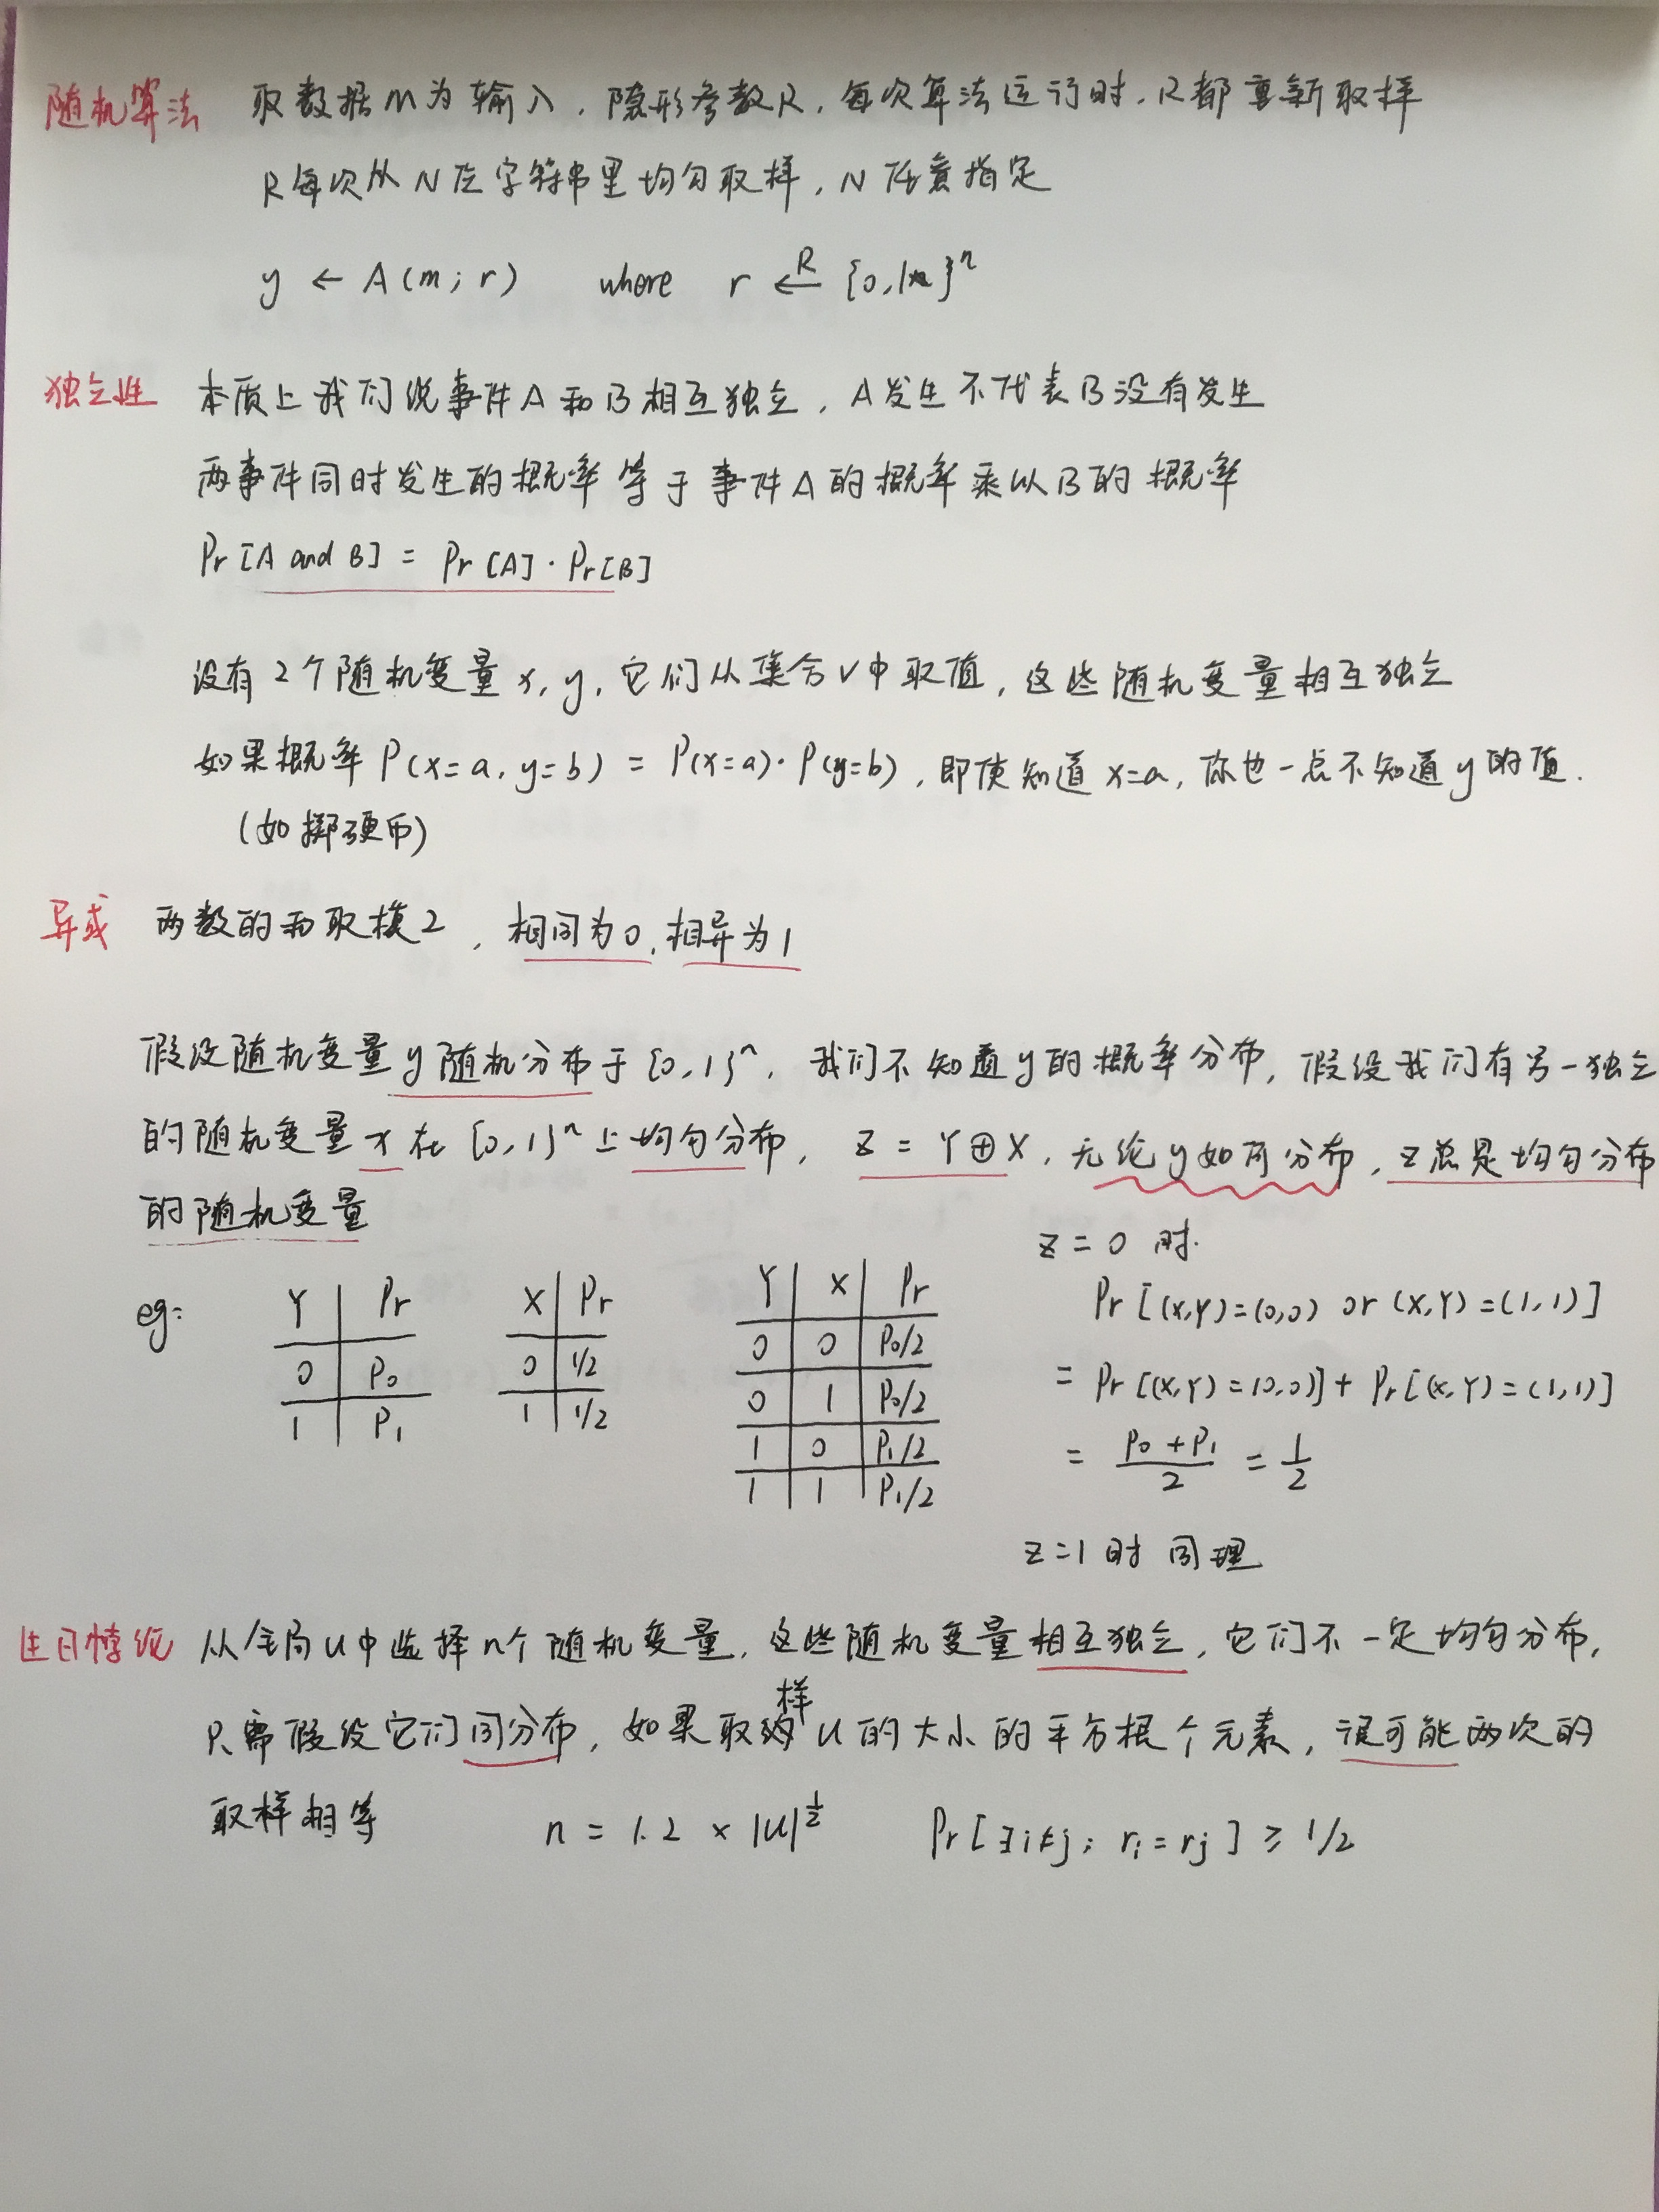 随机算法 取数据m为输入，隐形参数R，每次算法运行时，R都重新取样
R每次从N位字符串里均匀取样，N任意指定
y ← A(m; r) where r ←R {0,1}ⁿ
独立性 本质上我们说事件A和B相互独立，A发生不代表B没有发生
两事件同时发生的概率等于事件A的概率乘以B的概率
Pr[A and B] = Pr[A]·Pr[B]
设有2个随机变量x,y,它们从集合V中取值，这些随机变量相互独立
如果概率P(x=a, y=b) = P(x=a)·P(y=b)，即使知道x=a，你也一点不知道y的值.
(如掷硬币)
异或 两数的和取模2，相同为0,相异为1
假设随机变量y随机分布于{0,1}ⁿ，我们不知道y的概率分布，假设我们有另一独立
的随机变量x在{0,1}ⁿ上均匀分布，Z = Y⊕X，无论y如何分布，z总是均匀分布
的随机变量
z=0时.
eg:
Y Pr
0 P₀
1 P₁
X Pr
0 1/2
1 1/2
Y X Pr
0 0 P₀/2
0 1 P₀/2
1 0 P₁/2
1 1 P₁/2
Pr[(X,Y)=(0,0) or (X,Y)=(1,1)]
= Pr[(X,Y)=(0,0)] + Pr[(X,Y)=(1,1)]
= (P₀+P₁)/2 = 1/2
z=1时同理
生日悖论 从全局U中选择n个随机变量，这些随机变量相互独立，它们不一定均匀分布，
只需假设它们同分布，如果取样U的大小的平方根个元素，很可能两次的
取样相等 n = 1.2 × |U|^½ Pr[∃i≠j: rᵢ=rⱼ] ≥ 1/2